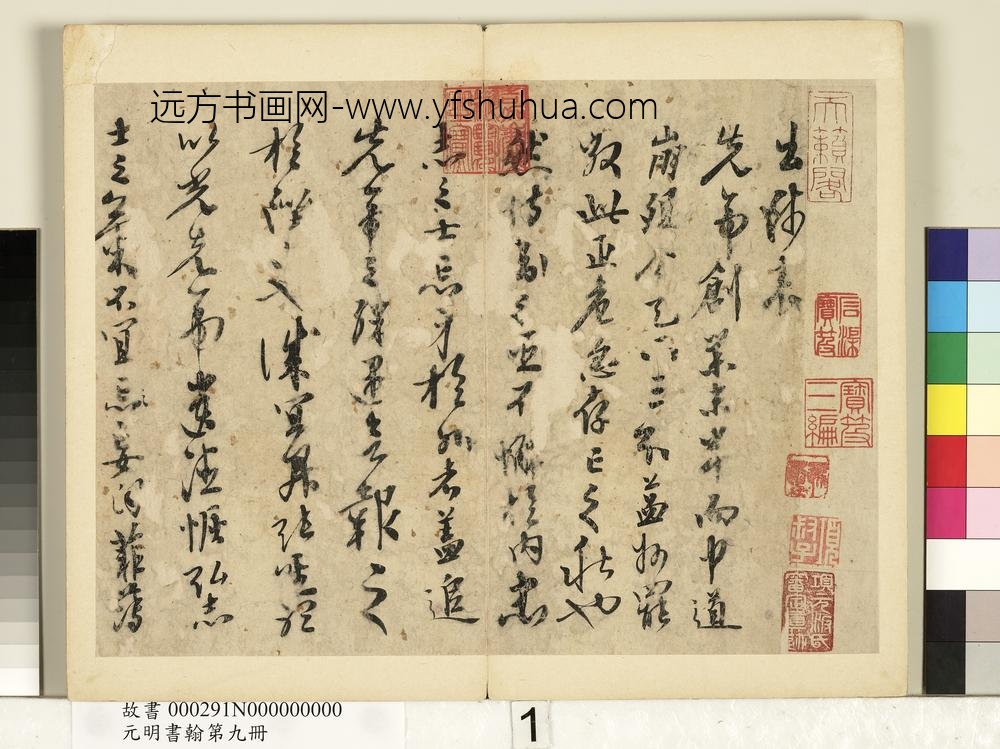 远方书画网-www.yfshuhua.com
天籟閣
石渠寶笈
寶笈三編
項叔子
項元汴氏審定真跡
出師表
先帝創業未半而中道
崩殂今天下三分益州罷
敝此正危急存亡之秋也
然侍衛之臣不懈於內忠
志之士忘身於外者蓋追
先帝之殊遇欲報之
於陛下也誠宜開張聖聽
以光先帝遺德恢弘志
士之氣不宜忘妄自菲薄
故書 000291N000000000
元明書翰第九冊
1